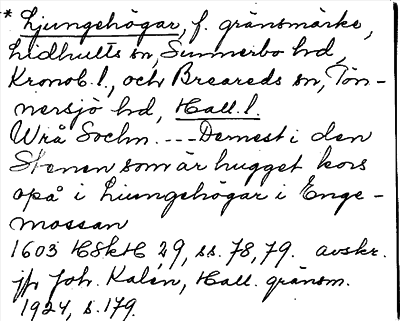 * Ljungehögar, f. gränsmärke,
Lidhults sn, Sunnerbo hd,
Kronob. l., och Breareds sn, Tön-
nersjö hd, Hall. l.
Wrå Sochn. --- Dernest i den
Stenen som är hugget kors
opå i Liungehögar i Enge-
mossan
1603 HSkH 29, ss. 78, 79. avskr.
jfr Joh. Kalén, Hall. gränsm.
1924, s. 179.